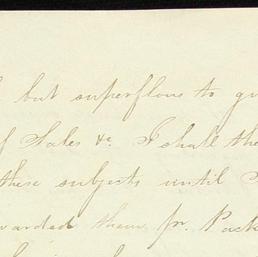 but superflous to
of Sales &c. I shall the
these subjects until
warded them pr. Pack